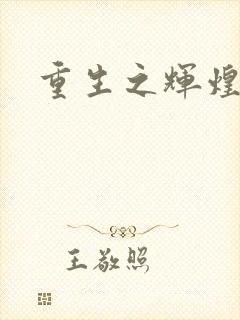 重生之辉煌
王敬照